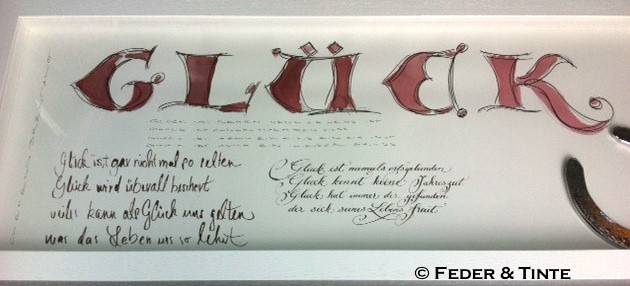 GLÜCK
Glück ist gar nicht mal so selten
Glück wird überall beschert
vieles kann als Glück uns gelten
was das Leben uns so lehrt
Glück ist niemals ortsgebunden
Glück kennt keine Jahreszeit
Glück hat immer der gefunden
der sich seines Lebens freut
© FEDER & TINTE